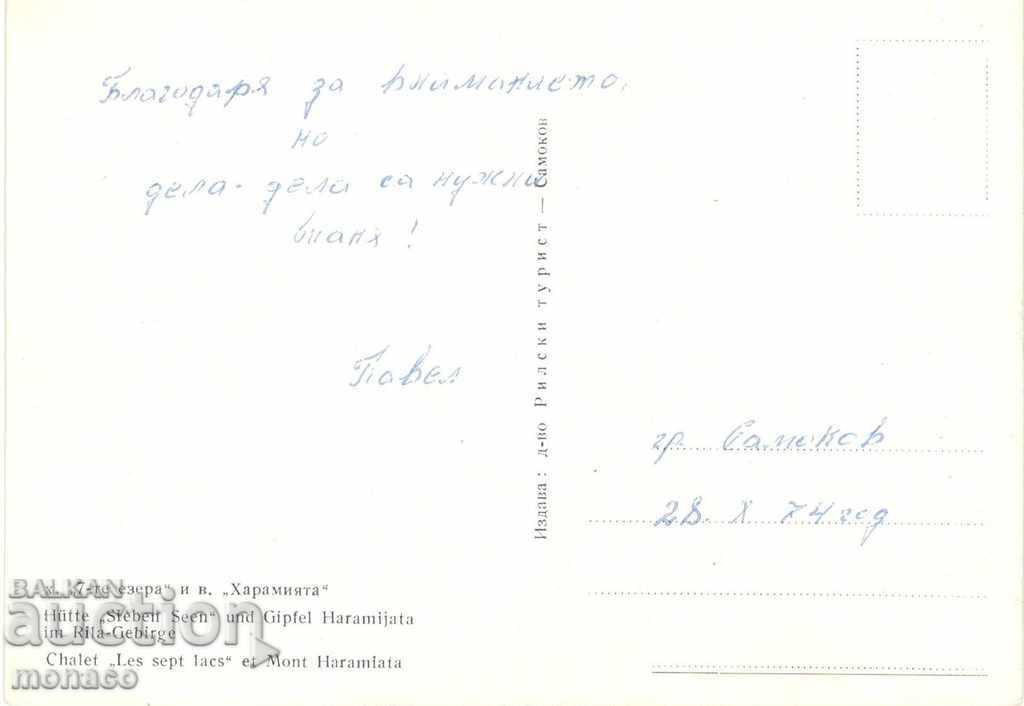 Благодаря за вниманието,
но
дела - дела са нужни
!
Павел
Издава: д-во Рилски турист — Самоков
гр. Самоков
28. X 74 год
х. „7-те езера“ и в. „Харамията“
Hütte „Sieben Seen“ und Gipfel Haramijata
im Rila-Gebirge
Chalet „Les sept lacs“ et Mont Haramiata
BALKAN
auction
monaco